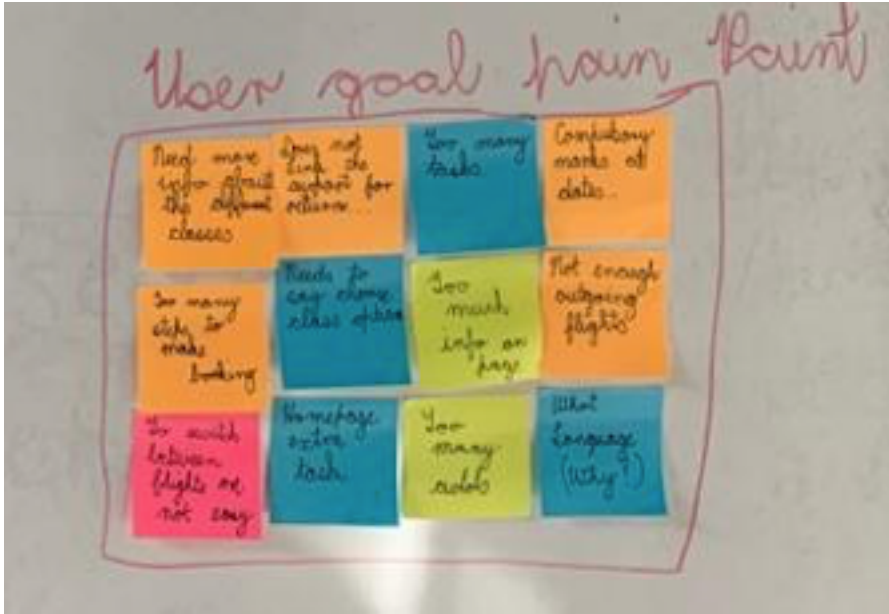 User goal pain Point
Need more
info about
the different
classes
Does not
link the
airport for
return
Too many
tasks
Compulsory
marks at
dates..
Too many
steps to
make
booking
Needs to
say choose
class option
Too
much
info on
page
Not enough
outgoing
flights
To switch
between
flights
not easy
Homepage
extra
task
Too
many
What
Language
(Why?)